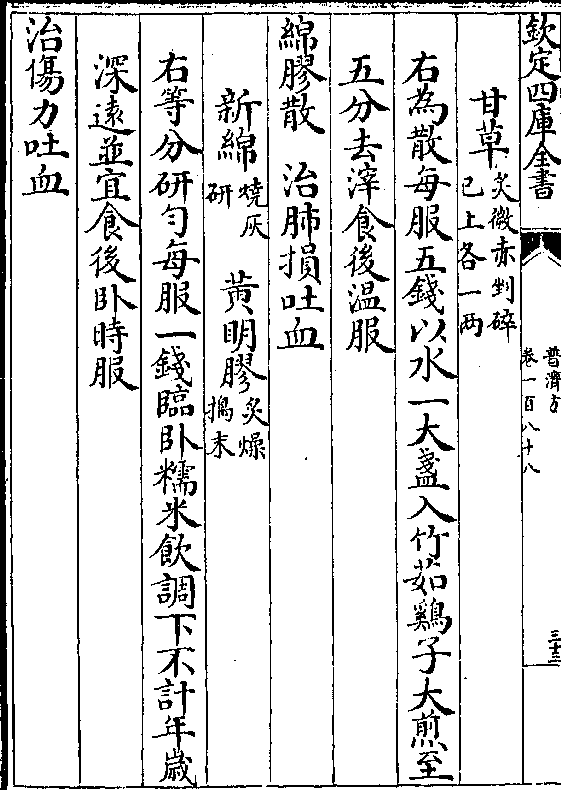 欽定四庫全書
普濟方
卷一百八十八
三十三
甘草炙微赤剉碎已上各一两
右為散每服五錢以水一大盞入竹茹鷄子大煎至
五分去滓食後温服
綿膠散　治肺損吐血
新綿燒灰研　黄明膠炙燥搗末
右等分研勻每服一錢臨卧糯米飲調下不計年歲
深逺並宜食後卧時服
治傷力吐血